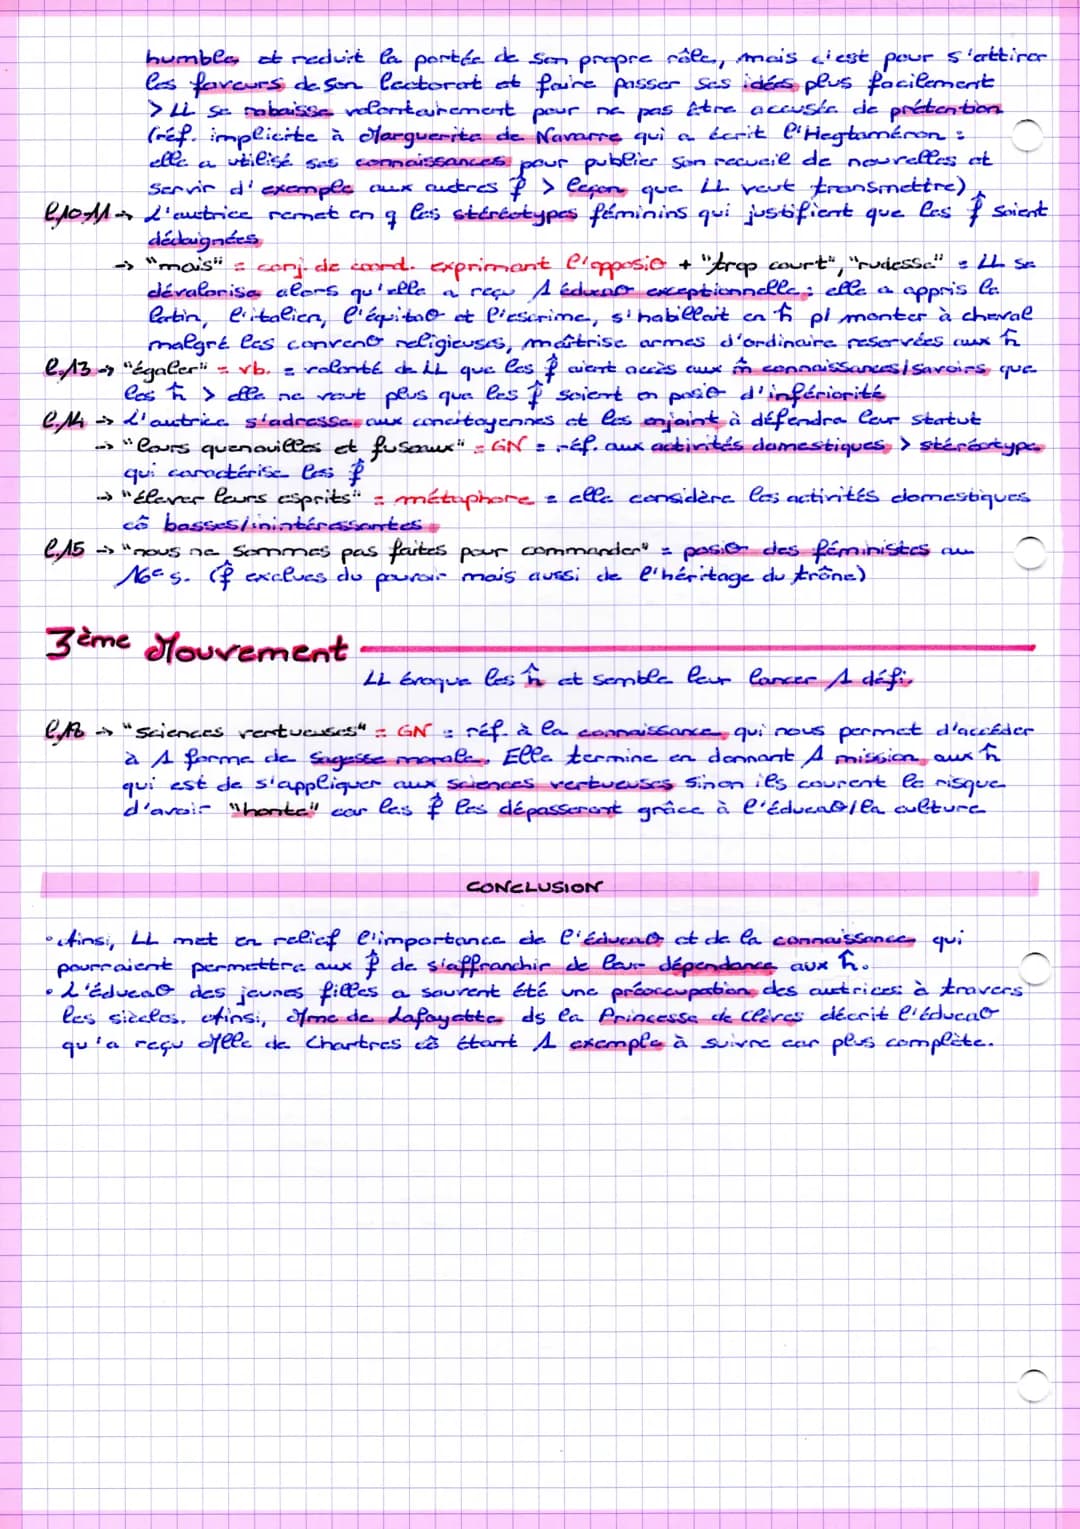 humble, et reduit la portée de son propre rôle, mais c'est pour s'attirer
les faveurs de son lectorat et faire passer ses idées plus facilement
> LL se rabaisse volontairement pour ne pas être accusée de prétention
(réf. implicite à Marguerite de Navarre qui a écrit l'Heptaméron :
elle a utilisé ses connaissances pour publier son recueil de nouvelles et
servir d'exemple aux autres f > leçon que LL veut transmettre)
l.10-11 → L'autrice remet en q les stéréotypes féminins qui justifient que les f soient
dédaignées
→ "mais" = conj. de coord. exprimant l'opposio + "trop court", "rudesse" = LL se
dévalorise alors qu'elle a reçu 1 éducao exceptionnelle : elle a appris le
latin, l'italien, l'équitao et l'escrime, s'habillait en h pr monter à cheval
malgré les conveno religieuses, maîtrise armes d'ordinaire reservées aux h
l.13 → "égaler" = vb. = volonté de LL que les f aient accès aux m̂ connaissances/savoirs que
les h > elle ne veut plus que les f soient en posio d'infériorité
l.14 → L'autrice s'adresse aux concitoyennes et les enjoint à défendre leur statut
→ "leurs quenouilles et fuseaux" = GN = réf. aux activités domestiques > stéréotype
qui caractérise les f
→ "élever leurs esprits" = métaphore = elle considère les activités domestiques
cô basses/inintéressantes
l.15 → "nous ne sommes pas faites pour commander" = posio des féministes au
16e s. (f exclues du pouvoir mais aussi de l'héritage du trône)
3ème Mouvement
LL évoque les h et semble leur lancer 1 défi
l.18 → "sciences vertueuses" = GN = réf. à la connaissance qui nous permet d'accéder
à 1 forme de sagesse morale. Elle termine en donnant 1 mission aux h
qui est de s'appliquer aux sciences vertueuses sinon ils courent le risque
d'avoir "honte" car les f les dépasseront grâce à l'éducao/la culture
CONCLUSION
• Ainsi, LL met en relief l'importance de l'éducao et de la connaissance qui
pourraient permettre aux f de s'affranchir de leur dépendance aux h.
• L'éducao des jeunes filles a souvent été une préoccupation des autrices à travers
les siècles. Ainsi, Mme de Lafayette ds la Princesse de Clèves décrit l'éducao
qu'a reçu Melle de Chartres cô étant 1 exemple à suivre car plus complète.